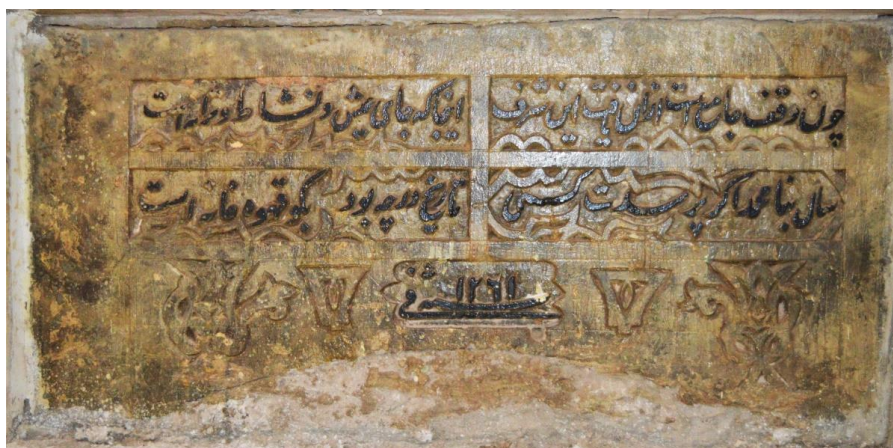 چون وقف جامع است ازان یافت این شرف اینجا که جای عیش و نشاط و ترانه است
سال بنا محمد اگر پرسدت کسی تاریخ در چه بود بگو قهوه خانه است
فی سنه ۱۲۶۱